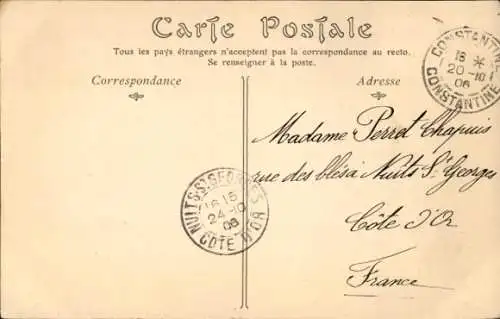 Carte Postale
Tous les pays étrangers n'acceptent pas la correspondance au recto.
Se renseigner à la poste.
Correspondance
Adresse
CONSTANTINE
18 *
20 -10
06
CONSTANTINE
Madame Perret Chapuis
rue des blés à Nuits St Georges
Côte d'Or
France
NUITS-ST-GEORGES
16 15
24 -10
06
COTE D'OR